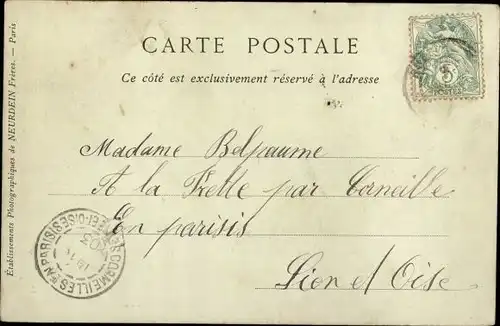 CARTE POSTALE
Ce côté est exclusivement réservé à l'adresse
POSTES
Madame Belpaume
A la Frette par Corneille
En parisis
Sien et Oise
CORMEILLES-EN-PARISIS
03
Établissements Photographiques de NEURDEIN Frères. — Paris